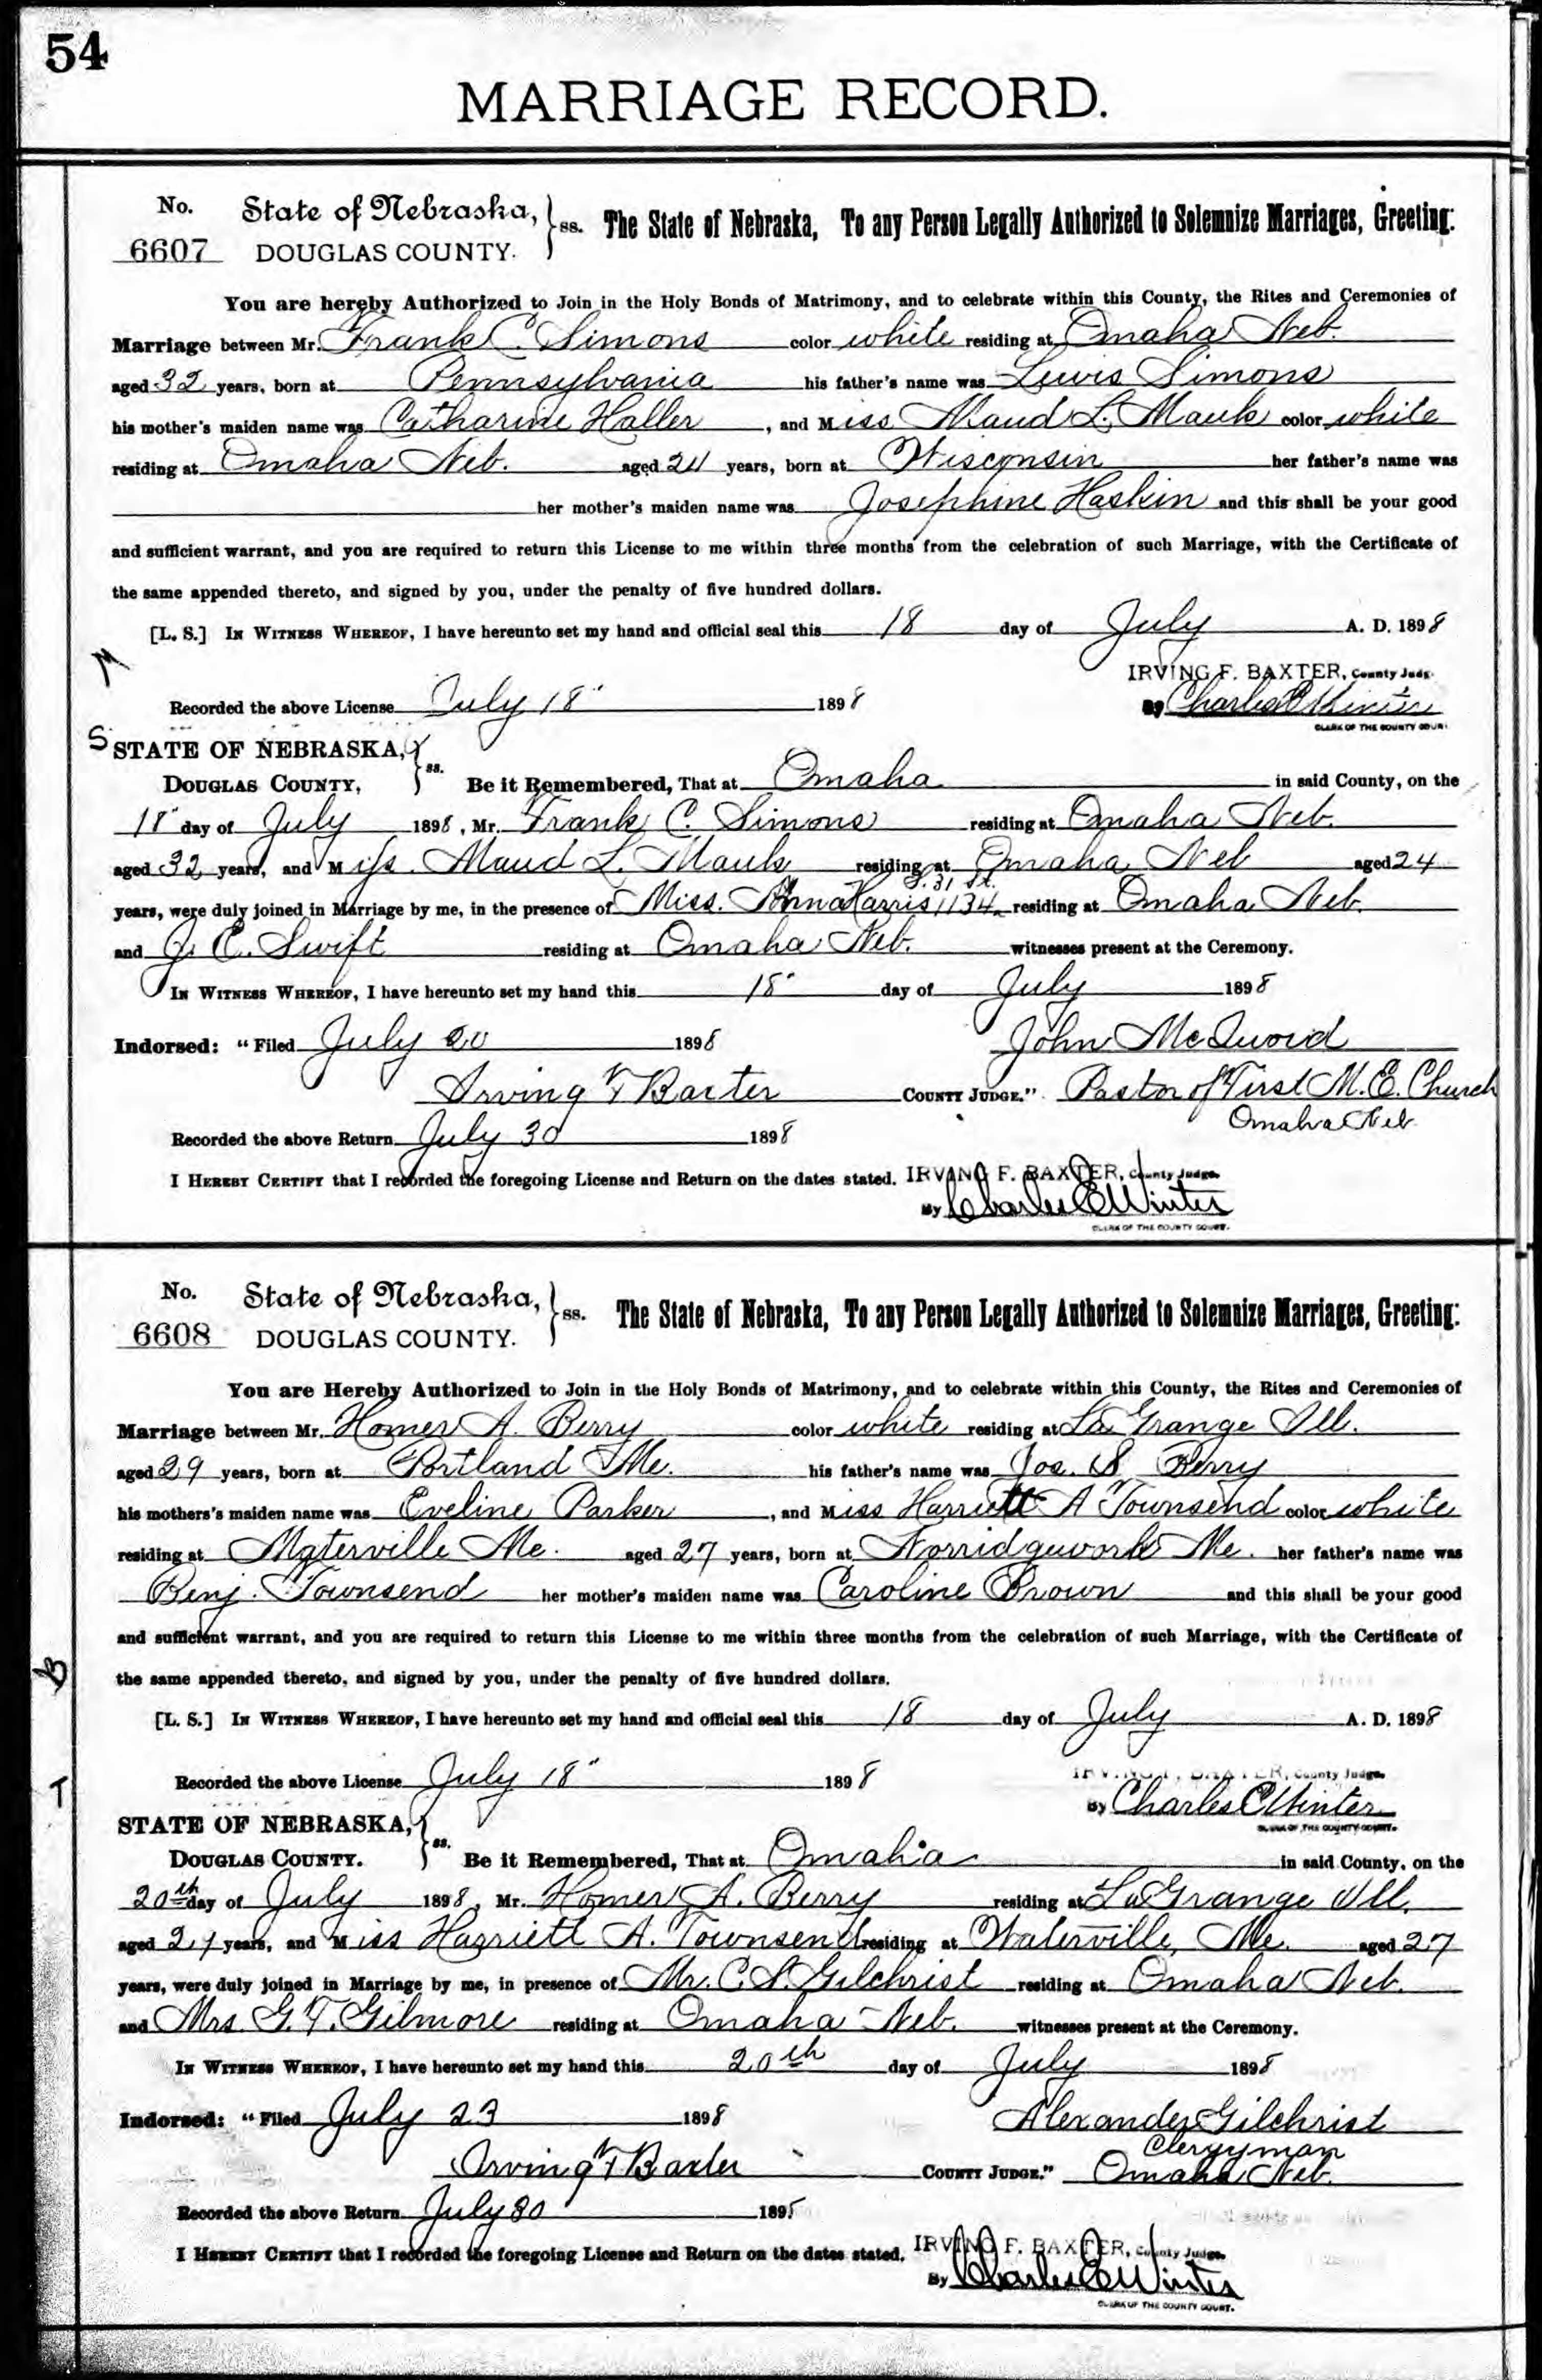 54
MARRIAGE RECORD.
No. State of Nebraska, } ss. The State of Nebraska, To any Person Legally Authorized to Solemnize Marriages, Greeting:
6607 DOUGLAS COUNTY.
You are hereby Authorized to Join in the Holy Bonds of Matrimony, and to celebrate within this County, the Rites and Ceremonies of
Marriage between Mr. Frank C. Simons color white residing at Omaha Neb.
aged 32 years, born at Pennsylvania his father's name was Lewis Simons
his mother's maiden name was Catharine Haller, and Miss Maud L. Mauk color white
residing at Omaha Neb. aged 24 years, born at Wisconsin her father's name was
her mother's maiden name was Josephine Haskin and this shall be your good
and sufficient warrant, and you are required to return this License to me within three months from the celebration of such Marriage, with the Certificate of
the same appended thereto, and signed by you, under the penalty of five hundred dollars.
[L. S.] In Witness Whereof, I have hereunto set my hand and official seal this 18 day of July A. D. 1898
M
IRVING F. BAXTER, County Judg
Recorded the above License July 18" 1898 By Charles E Winter
CLERK OF THE COUNTY COUR
S STATE OF NEBRASKA, } ss.
Douglas County, Be it Remembered, That at Omaha in said County, on the
18" day of July 1898, Mr. Frank C. Simons residing at Omaha Neb.
aged 32 years, and Miss. Maud L. Mauk residing at Omaha, Neb aged 24
S. 31 St.
years, were duly joined in Marriage by me, in the presence of Miss. Anna Harris 1134 residing at Omaha Neb.
and J. E. Swift residing at Omaha Neb. witnesses present at the Ceremony.
In Witness Whereof, I have hereunto set my hand this 18" day of July 1898
Indorsed: "Filed July 20 1898 John McQuoid
Irving F Baxter County Judge." Pastor of First M. E. Church
Omaha Neb.
Recorded the above Return July 30 1898
I Hereby Certify that I recorded the foregoing License and Return on the dates stated. IRVING F. BAXTER, County Judge.
By Charles E Winter
CLERK OF THE COUNTY COURT.
No. State of Nebraska, } ss. The State of Nebraska, To any Person Legally Authorized to Solemnize Marriages, Greeting:
6608 DOUGLAS COUNTY.
You are Hereby Authorized to Join in the Holy Bonds of Matrimony, and to celebrate within this County, the Rites and Ceremonies of
Marriage between Mr. Homer A. Berry color white residing at La Grange Ill.
aged 29 years, born at Portland Me. his father's name was Jos. S Berry
his mothers's maiden name was Eveline Parker, and Miss Harriett A Townsend color white
residing at Waterville Me. aged 27 years, born at Norridgework Me. her father's name was
Benj. Townsend her mother's maiden name was Caroline Brown and this shall be your good
and sufficient warrant, and you are required to return this License to me within three months from the celebration of such Marriage, with the Certificate of
B
the same appended thereto, and signed by you, under the penalty of five hundred dollars.
[L. S.] In Witness Whereof, I have hereunto set my hand and official seal this 18 day of July A. D. 1898
IRVING F. BAXTER, County Judge.
T
Recorded the above License July 18" 1898 By Charles E Winter
CLERK OF THE COUNTY COURT.
STATE OF NEBRASKA, } ss.
Douglas County. Be it Remembered, That at Omaha in said County, on the
20th day of July 1898, Mr. Homer A. Berry residing at La Grange Ill.
aged 29 years, and Miss Harriett A. Townsend residing at Waterville, Me. aged 27
years, were duly joined in Marriage by me, in presence of Mr. C. S. Gilchrist residing at Omaha Neb.
and Mrs. G. T. Gilmore residing at Omaha Neb. witnesses present at the Ceremony.
In Witness Whereof, I have hereunto set my hand this 20th day of July 1898
Indorsed: "Filed July 23 1898 Alexander Gilchrist
Clergyman
Irving F Baxter County Judge." Omaha Neb.
Recorded the above Return July 30 1898
I Hereby Certify that I recorded the foregoing License and Return on the dates stated. IRVING F. BAXTER, County Judge.
By Charles E Winter
CLERK OF THE COUNTY COURT.